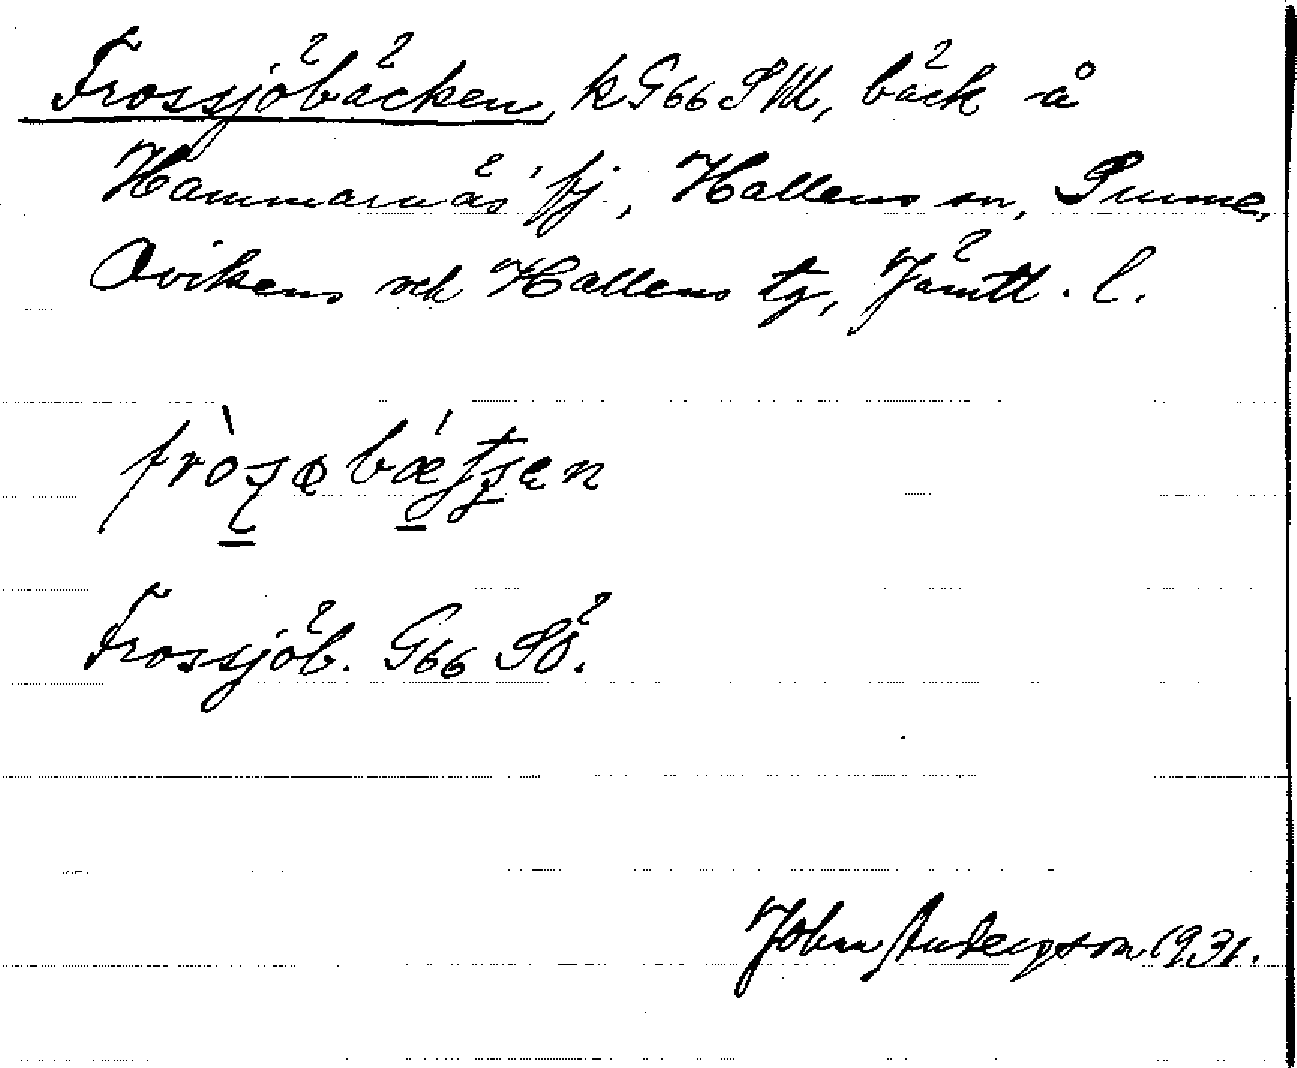 Frossjöbäcken, kG66SVM, bäck å
Hammarnäs' fj., Hallens sn, Sunne,
Ovikens och Hallens tg, Jämtl. l.
Frossjöb. G66 SÖ.
John Anderson 1931.